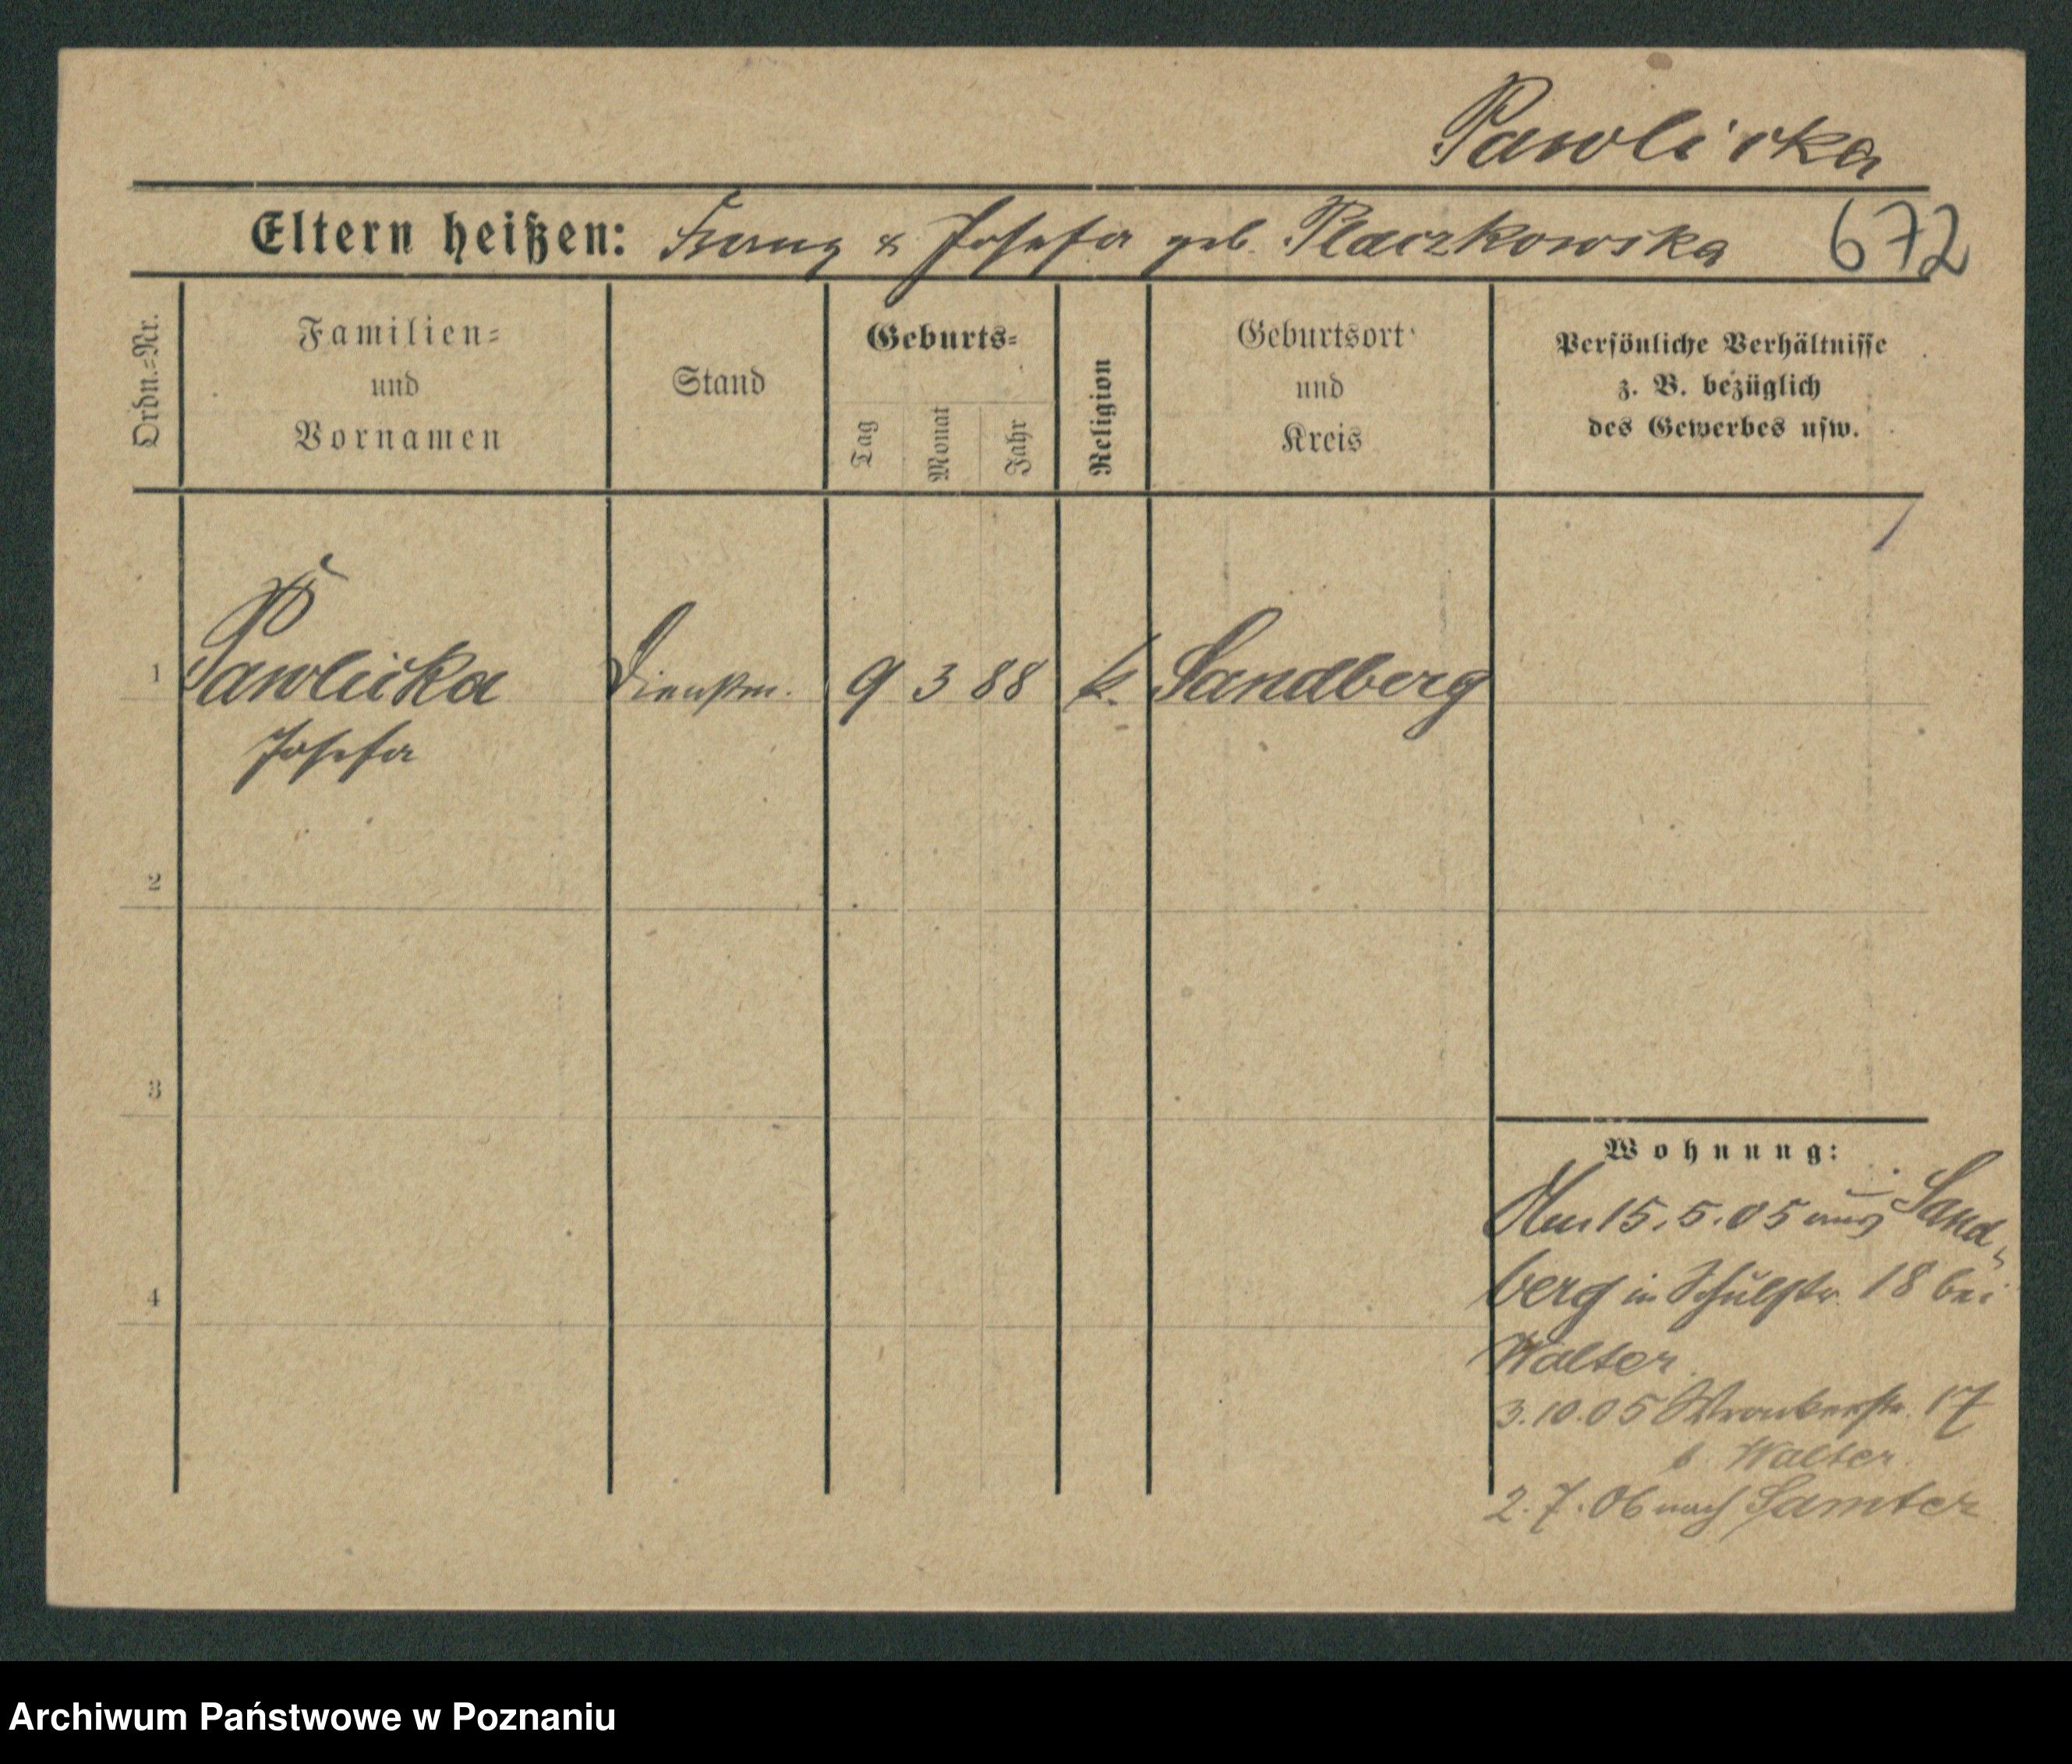 Pawlicka
Eltern heißen: Franz & Josefa geb. Placzkowska 672
Ordn.-Nr.
Familien-
und
Vornamen
Stand
Geburts-
Tag
Monat
Jahr
Religion
Geburtsort
und
Kreis
Persönliche Verhältnisse
z. B. bezüglich
des Gewerbes usw.
1 Pawlicka Dienstm. 9 3 88 k. Sandberg
Josefa
2
3
4
Wohnung:
Am 15.5.05 aus Sand-
berg in Schulstr. 18 bei
Walter
3.10.05 Wronkerstr. 17
b. Walter.
2.7.06 nach Samter
Archiwum Państwowe w Poznaniu